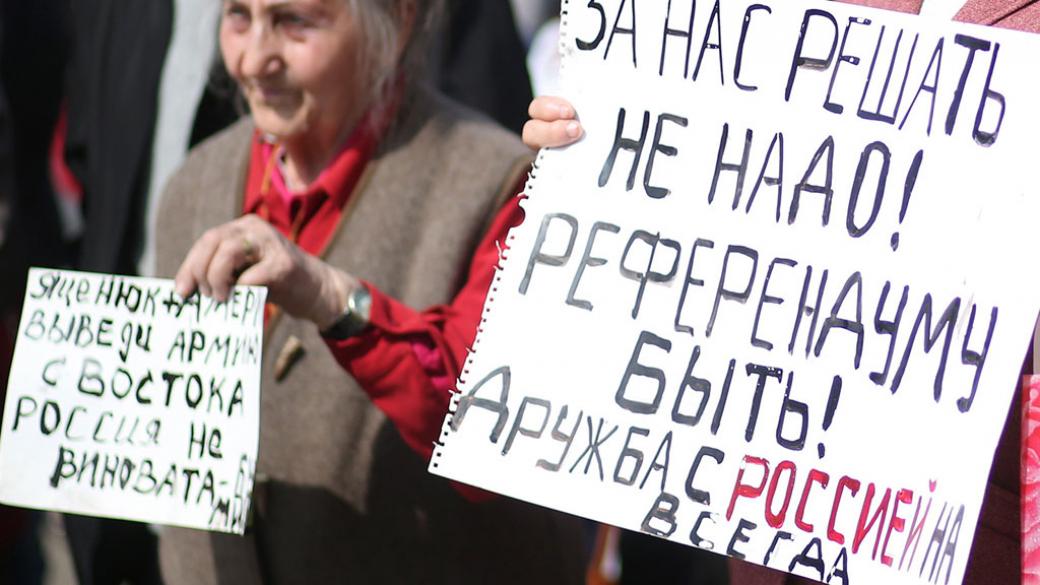 ЯЦЕНЮК
ВЫВЕДИ АРМИЮ
С ВОСТОКА
РОССИЯ НЕ
ВИНОВАТА-
ЗА НАС РЕШАТЬ
НЕ НАДО!
РЕФЕРЕНДУМУ
БЫТЬ!
ДРУЖБА С РОССИЕЙ НА
ВСЕГДА